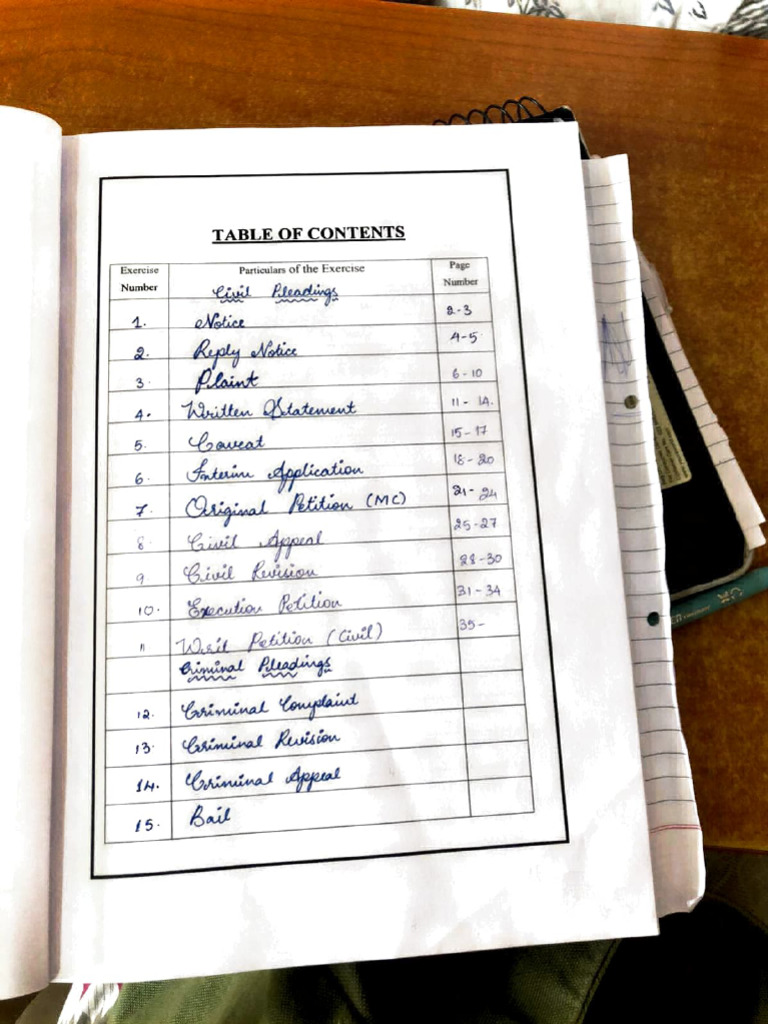 TABLE OF CONTENTS
Exercise Number Particulars of the Exercise Page Number
Civil Pleadings
1. Notice 2-3
2. Reply Notice 4-5
3. Plaint 6-10
4. Written Statement 11-14
5. Caveat 15-17
6. Interim Application 18-20
7. Original Petition (MC) 21-24
8. Civil Appeal 25-27
9 Civil Revision 28-30
10. Execution Petition 31-34
11 Writ Petition (Civil) 35-
Criminal Pleadings
12. Criminal Complaint
13. Criminal Revision
14. Criminal Appeal
15. Bail